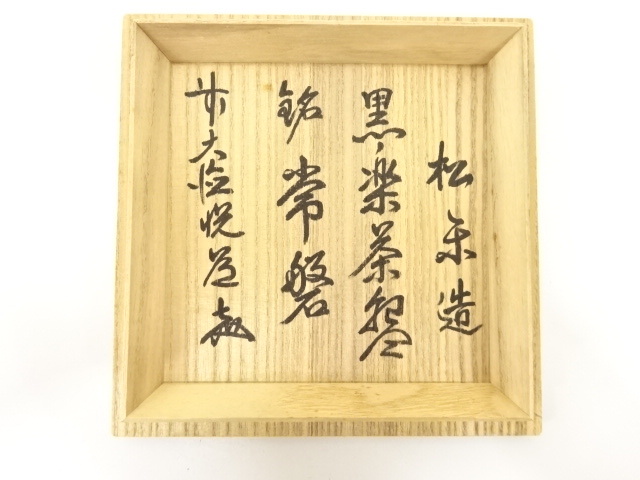 松楽造
黒楽茶碗
銘 常磐
前大徳悦道